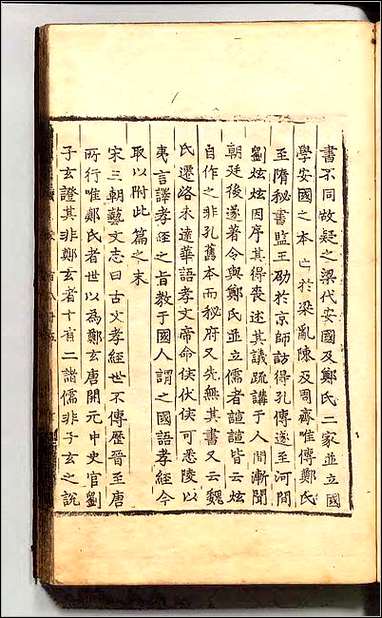 書不同故疑之梁代安國及鄭氏二家並立國
學安國之本亡於梁亂陳及周齊唯傳鄭氏
至隋秘書監王劭於京師訪得孔傳遂至河間
劉炫炫因序其得喪述其議疏講于人間漸聞
朝廷後遂著令與鄭氏並立儒者諠諠皆云炫
自作之非孔舊本而秘府又先無其書又云魏
氏遷洛未達華語孝文帝命侯伏侯可悉陵以
夷言譯孝經之旨教于國人謂之國語孝經今
取以附此篇之末
宋三朝藝文志曰古文孝經世不傳歷晉至唐
所行唯鄭氏者世以為鄭玄唐開元中史官劉
子玄證其非鄭玄者十有二諸儒非子玄之說